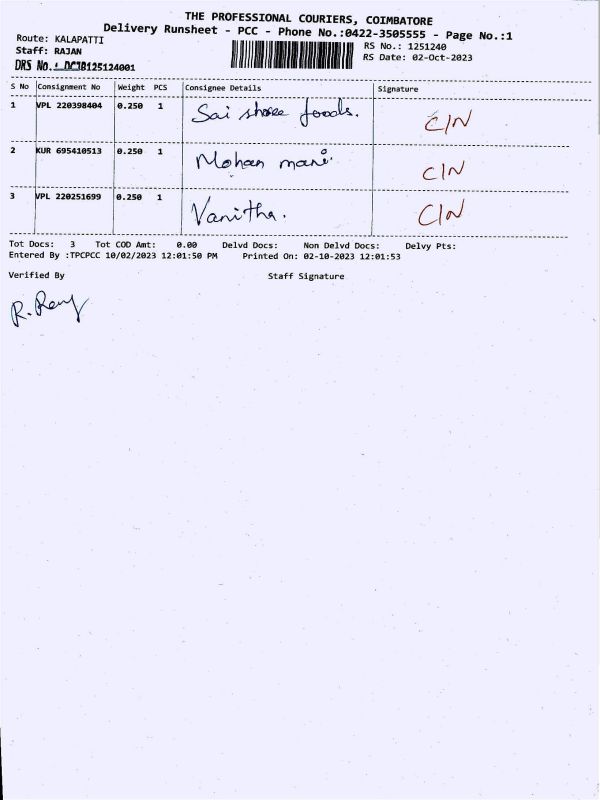 THE PROFESSIONAL COURIERS, COIMBATORE
Delivery Runsheet - PCC - Phone No.:0422-3505555 - Page No.:1
Route: KALAPATTI RS No.: 1251240
Staff: RAJAN RS Date: 02-Oct-2023
DRS No.: DCJB125124001
S No Consignment No Weight PCS Consignee Details Signature
1 VPL 220398404 0.250 1 Sai shree foods. C/N
2 KUR 695410513 0.250 1 Mohan mani C/N
3 VPL 220251699 0.250 1 Vanitha. C/N
Tot Docs: 3 Tot COD Amt: 0.00 Delvd Docs: Non Delvd Docs: Delvy Pts:
Entered By :TPCPCC 10/02/2023 12:01:50 PM Printed On: 02-10-2023 12:01:53
Verified By Staff Signature